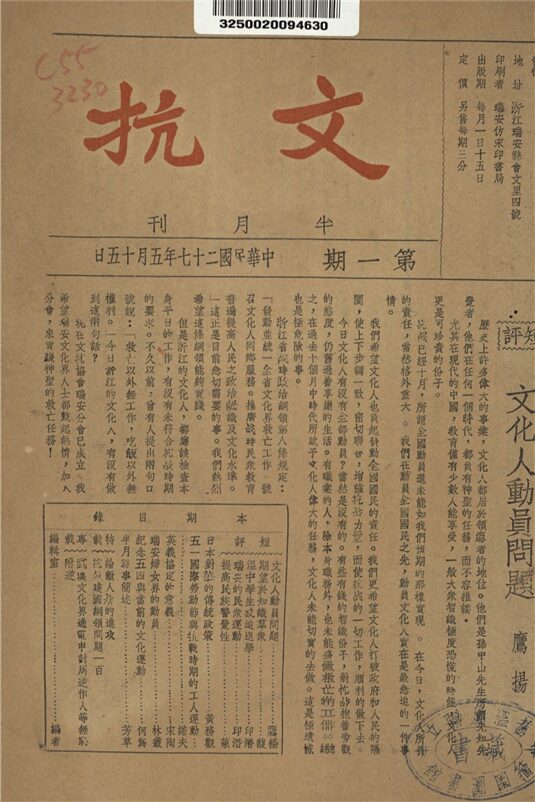 3250020094630
C55
3230
地址　浙江瑞安縣會文里四號
印刷者　瑞安仿宋印書局
出版期　每月一日十五日
定價　另售每期三分
文抗
半月刊
第一期　中華民國二十七年五月十五日
短評
文化人動員問題　鷹揚
歷史上許多偉大的事業,文化人都居於領導者的地位。他們是孫中山先生所謂先知先
覺者,他們在任何一個時代,都負有神聖的任務,而不容推諉。
尤其在現代的中國,教育僅有少數人能享受,一般大衆智識極度恐慌的時候,文化人
更是可珍貴的份子。
抗戰已經十月,所謂全國動員還未能如我們預期的那樣實現。在今日,文化人所負
的責任,當然格外重大。我們在動員全國國民之先,動員文化人實在是最急迫的一件事
情。
我們希望文化人也負起發動全國國民的責任。我們更希望文化人打破政府和人民的隔
閡,使上下步調一致,密切聯合,增強抗戰力量,而使抗戰的一切工作,順利的做下去。
今日文化人有沒有全部動員?當然是沒有的。有些有錢的智識份子,對抗戰抱着旁觀
的態度,仍舊過着享樂的生活。有職業的人,除本身職務外,也未能多做救亡的工作。總
之,在過去十個月中時代所賦予文化人偉大的任務,文化人未能切實的去做。這是極遺憾
也是極危險的事。
浙江省戰時政治綱領第八條規定:
「發動並統一全省文化界救亡工作。號
召文化人回鄉服務。推廣戰時民衆教育
普遍提高人民之政治認識及文化水準。
」這正是目前急切需要的事。我們熱烈
希望這條綱領能夠實踐。
但是浙江的文化人,都應該檢查本
身平日的工作,有沒有未符合抗戰時期
的要求。不久以前,曾有人提出兩句口
號說:「救亡以外無工作,吃飯以外無
權利。」今日浙江的文化人,有沒有做
到這兩句話?
抗在文抗協會瑞安分會已成立。我
希望瑞安文化界人士都鼓起熱情,加入
分會,來實踐神聖的救亡任務!
本期目錄
短評
文化人動員問題……鷹揚
期望於知識羣衆……馥
溫中學生被迫退學……印潛
瑞安的民衆運動……印潛
提高民族警覺性……葉
日本對華的傳統政策……黃務觀
五一國際勞動節與抗戰時期的工人運動……
英義協定的意義……宋陶
瑞安婦女界的動員……林叢
紀念五四與當前的文化運動……何為
半月時事簡述……芳草
特載
給敵人猛的進攻
抗戰建國綱領問題一百
專載
武漢文化界通電申討周逆作人等無恥
附逆
編輯室……編者